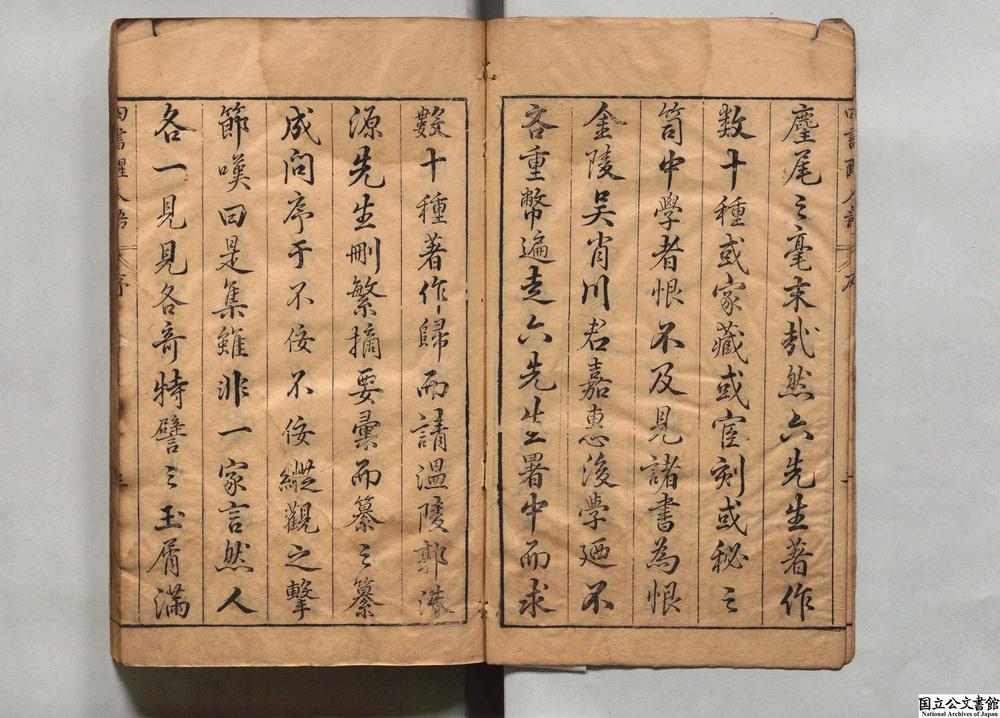 麈尾之毫末哉然六先生著作
数十種或家藏或宦刻或秘之
笥中學者恨不及見諸書為恨
金陵吴肖川君嘉惠後學廼不
吝重幣遍走六先生署中而求
數十種著作歸而請溫陵郭洙
源先生刪繁摘要彙而纂之纂
成问序于不佞不佞縱觀之擊
節嘆曰是集雖非一家言然人
各一見見各奇特譬之玉屑滿
四書醒人語
序
国立公文書館
National Archives of Japan